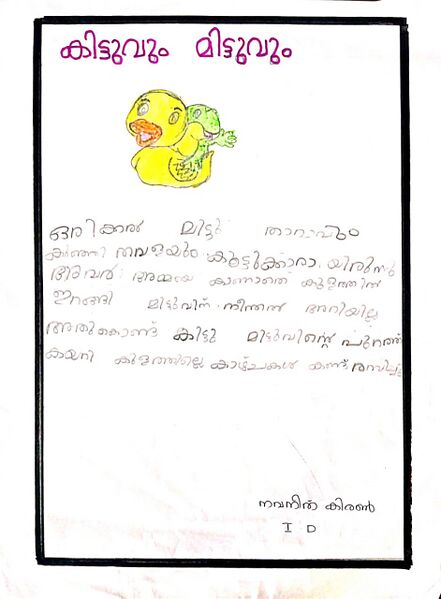 കിട്ടുവും മിട്ടുവും
ഒരിക്കൽ മിട്ടു താറാവും
തവളയും കൂട്ടുക്കാരാ യിരുന്നു
ഇവർ അമ്മയെ കാണാതെ കുളത്തിൽ
ഇറങ്ങി മിട്ടുവിന് നീന്തൽ അറിയില്ല
അതുകൊണ്ട് കിട്ടു മിട്ടുവിന്റെ പുറത്ത്
കയറി കുളത്തിലെ കാഴ്ചകൾ കണ്ട്
നവനീത് കിരൺ
I D